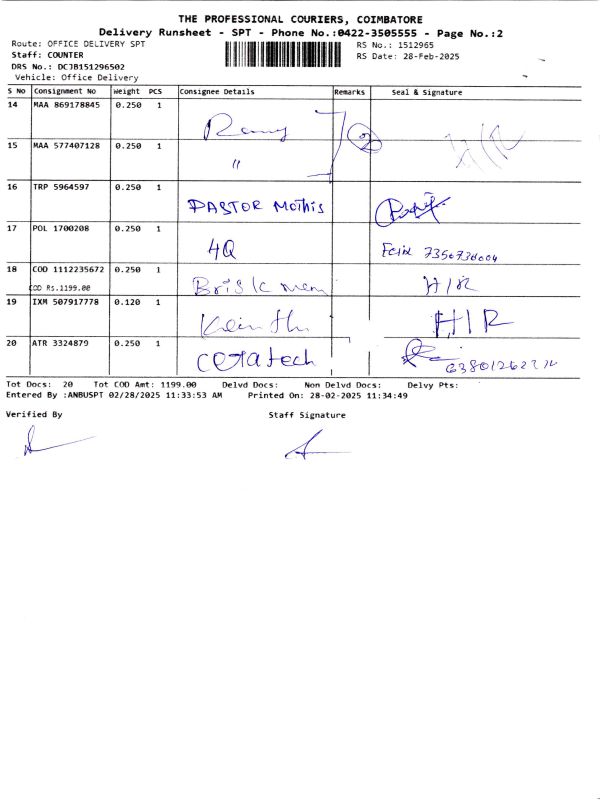 THE PROFESSIONAL COURIERS, COIMBATORE
Delivery Runsheet - SPT - Phone No.:0422-3505555 - Page No.:2
Route: OFFICE DELIVERY SPT RS No.: 1512965
Staff: COUNTER RS Date: 28-Feb-2025
DRS No.: DCJB151296502
Vehicle: Office Delivery
S No Consignment No Weight PCS Consignee Details Remarks Seal & Signature
14 MAA 869178845 0.250 1
15 MAA 577407128 0.250 1 "
16 TRP 5964597 0.250 1 PASTOR Mothis
17 POL 1700208 0.250 1 4Q
18 COD 1112235672 0.250 1 H/R
COD Rs.1199.00
19 IXM 507917778 0.120 1 H/R
20 ATR 3324879 0.250 1 ceratech
Tot Docs: 20 Tot COD Amt: 1199.00 Delvd Docs: Non Delvd Docs: Delvy Pts:
Entered By :ANBUSPT 02/28/2025 11:33:53 AM Printed On: 28-02-2025 11:34:49
Verified By Staff Signature